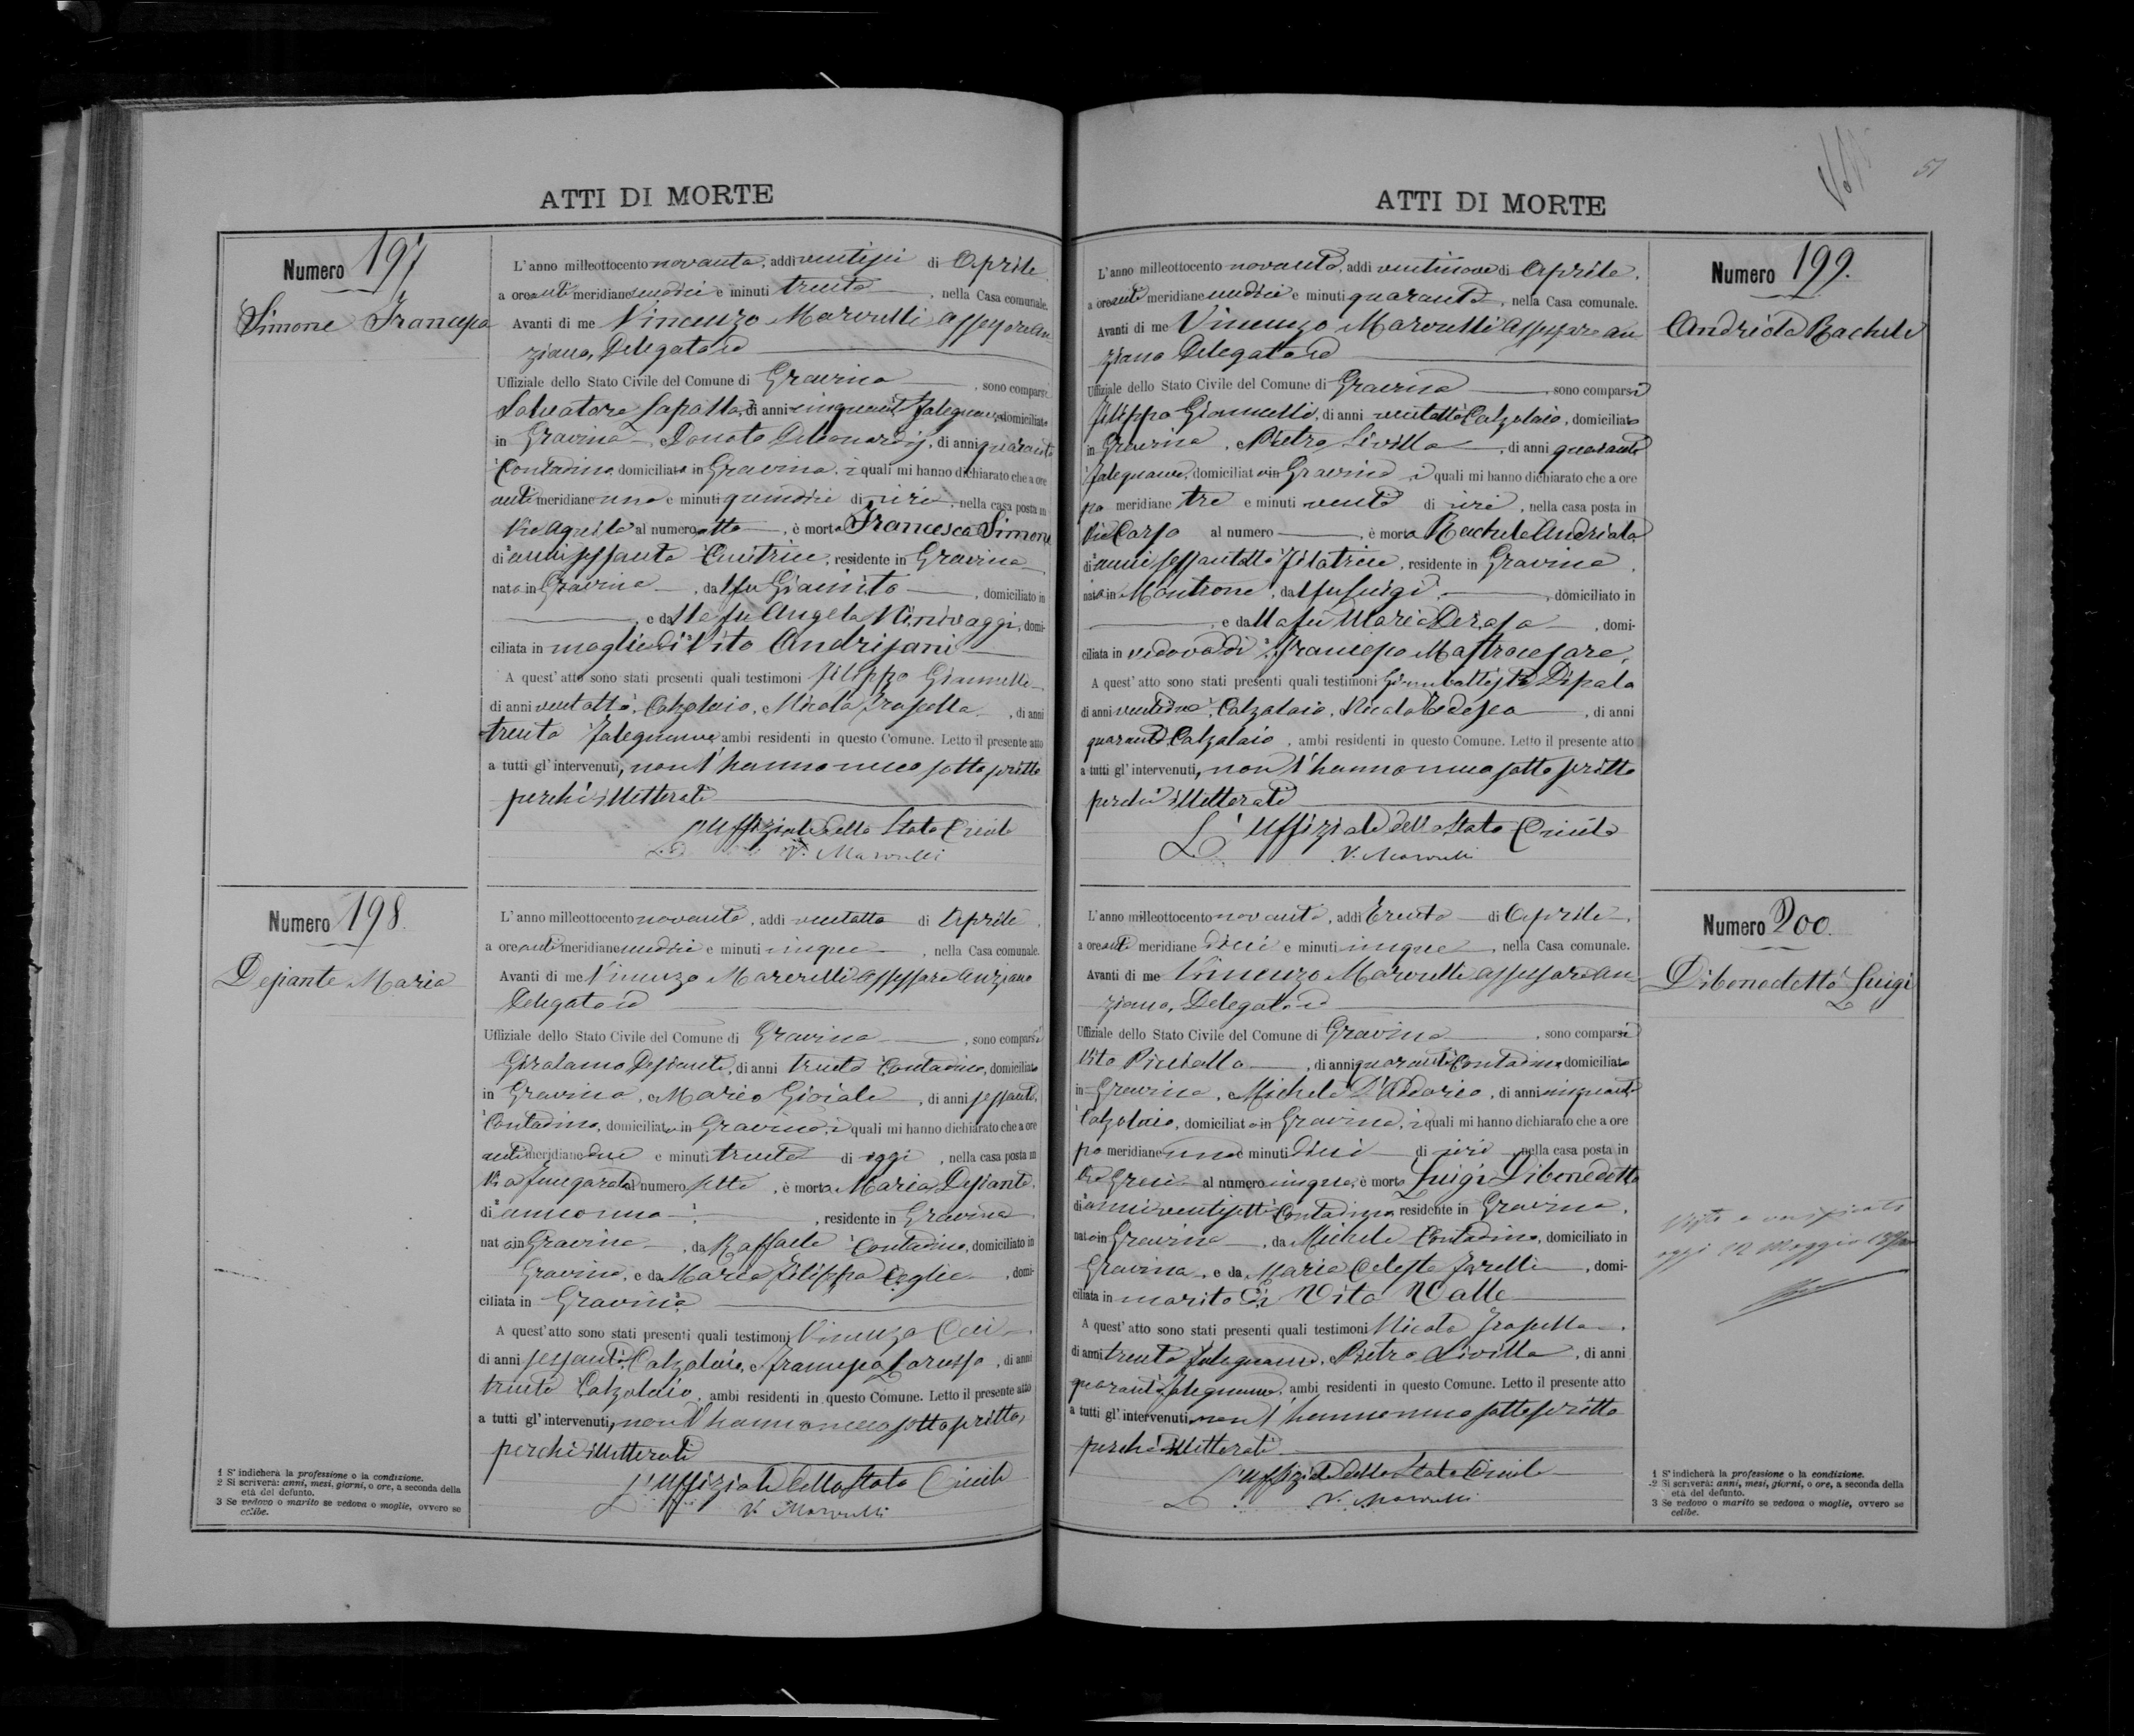 ATTI DI MORTE
Numero 197
Simone Francesca
L'anno milleottocento novanta, addi ventisei di Aprile
a ore anti meridiane undici e minuti trenta, nella Casa comunale.
Avanti di me Vincenzo Marvulli Assessore An
ziano, Delegato
Uffiziale dello Stato Civile del Comune di Gravina, sono comparsi
Salvatore, di anni cinquanta Falegname, domiciliato
in Gravina, Donato Deleonardis, di anni quaranta
Contadino, domiciliato in Gravina, i quali mi hanno dichiarato che a ore
anti meridiane una e minuti quindici di ieri, nella casa posta in
Via Aquila al numero otto, è morta Francesca Simone
di anni sessanta Cucitrice, residente in Gravina
nata in Gravina, dal fu Giacinto, domiciliato in
, e dalla fu Angela Ninivaggi, domi-
ciliata in moglie di Vito Andrisani
A quest'atto sono stati presenti quali testimoni Filippo Giannelli
di anni ventotto, Calzolaio, Nicola Frasella, di anni
trenta Falegname, ambi residenti in questo Comune. Letto il presente atto
a tutti gl'intervenuti, non l'hanno meco sottoscritto
perchè illetterati
L'Uffiziale dello Stato Civile
V. Marvulli
Numero 198.
Desiante Maria
L'anno milleottocento novanta, addi ventotto di Aprile
a ore anti meridiane undici e minuti cinque, nella Casa comunale.
Avanti di me Vincenzo Marvulli Assessore Anziano
Delegato
Uffiziale dello Stato Civile del Comune di Gravina, sono comparsi
Giralamo Desiante, di anni trenta Contadino, domiciliato
in Gravina, e Mario Gioiale, di anni sessanta,
Contadino, domiciliato in Gravina, i quali mi hanno dichiarato che a ore
anti meridiane due e minuti trenta di oggi, nella casa posta in
Via al numero sette, è morta Maria Desiante
di anni uno, residente in Gravina
nata in Gravina, da Raffaele Contadino, domiciliato in
Gravina, e da Maria Filippa Ceglie, domi-
ciliata in Gravina
A quest'atto sono stati presenti quali testimoni Vincenzo
di anni sessanta, Calzolaio, e Francesco Larusso, di anni
trenta Calzolaio, ambi residenti in questo Comune. Letto il presente atto
a tutti gl'intervenuti, non l'hanno meco sottoscritto,
perchè illetterati
L'Uffiziale dello Stato Civile
V. Marvulli
1 S'indicherà la professione o la condizione.
2 Si scriverà: anni, mesi, giorni, o ore, a seconda della
età del defunto.
3 Se vedovo o marito se vedova o moglie, ovvero se
celibe.
51
ATTI DI MORTE
Numero 199.
Andriola Rachele
L'anno milleottocento novanta, addi ventinove di Aprile.
a ore anti meridiane undici e minuti quaranta, nella Casa comunale.
Avanti di me Vincenzo Marvulli Assessore an
ziano Delegato
Uffiziale dello Stato Civile del Comune di Gravina, sono comparsi
Filippo Giannelli, di anni ventotto Calzolaio, domiciliato
in Gravina, Pietro Sivilla, di anni quaranta
Falegname, domiciliato in Gravina i quali mi hanno dichiarato che a ore
po meridiane tre e minuti venti di ieri, nella casa posta in
Via Corso al numero, è morta Rachele Andriola
di anni sessantotto Filatrice, residente in Gravina.
nata in Montrone, dal fu Luigi, domiciliato in
, e dalla fu Maria Derasa, domi-
ciliata in vedova di Francesco Mastrocesare.
A quest'atto sono stati presenti quali testimoni Giambattista Dipalo
di anni ventidue, Calzolaio, Nicola Tedesco, di anni
quaranta Calzolaio, ambi residenti in questo Comune. Letto il presente atto
a tutti gl'intervenuti, non l'hanno meco sottoscritto
perchè illetterati
L'Uffiziale dello Stato Civile
V. Marvulli
Numero 200.
Dibenedetto Luigi
L'anno milleottocento novanta, addi Trenta di Aprile.
a ore anti meridiane dieci e minuti cinque, nella Casa comunale.
Avanti di me Vincenzo Marvulli assessore an
ziano, Delegato
Uffiziale dello Stato Civile del Comune di Gravina, sono comparsi
Vito, di anni quaranta Contadino domiciliato
in Gravina, Michele D'Addario, di anni cinquanta
Calzolaio, domiciliato in Gravina, i quali mi hanno dichiarato che a ore
po meridiane una e minuti dieci di ieri, nella casa posta in
Via al numero cinque, è morto Luigi Dibenedetto
di anni ventisette Contadino residente in Gravina.
nato in Gravina, da Michele Contadino, domiciliato in
Gravina, e da Maria Celeste, domi-
ciliata in marito di Vita Valle
A quest'atto sono stati presenti quali testimoni Nicola Frasella
di anni trenta falegname, Pietro Sivilla, di anni
quaranta falegname, ambi residenti in questo Comune. Letto il presente atto
a tutti gl'intervenuti non l'hanno meco sottoscritto
perchè illetterati
L'Uffiziale dello Stato Civile
V. Marvulli
Visto e verificato
oggi Maggio
1 S'indicherà la professione o la condizione.
2 Si scriverà: anni, mesi, giorni, o ore, a seconda della
età del defunto.
3 Se vedovo o marito se vedova o moglie, ovvero se
celibe.